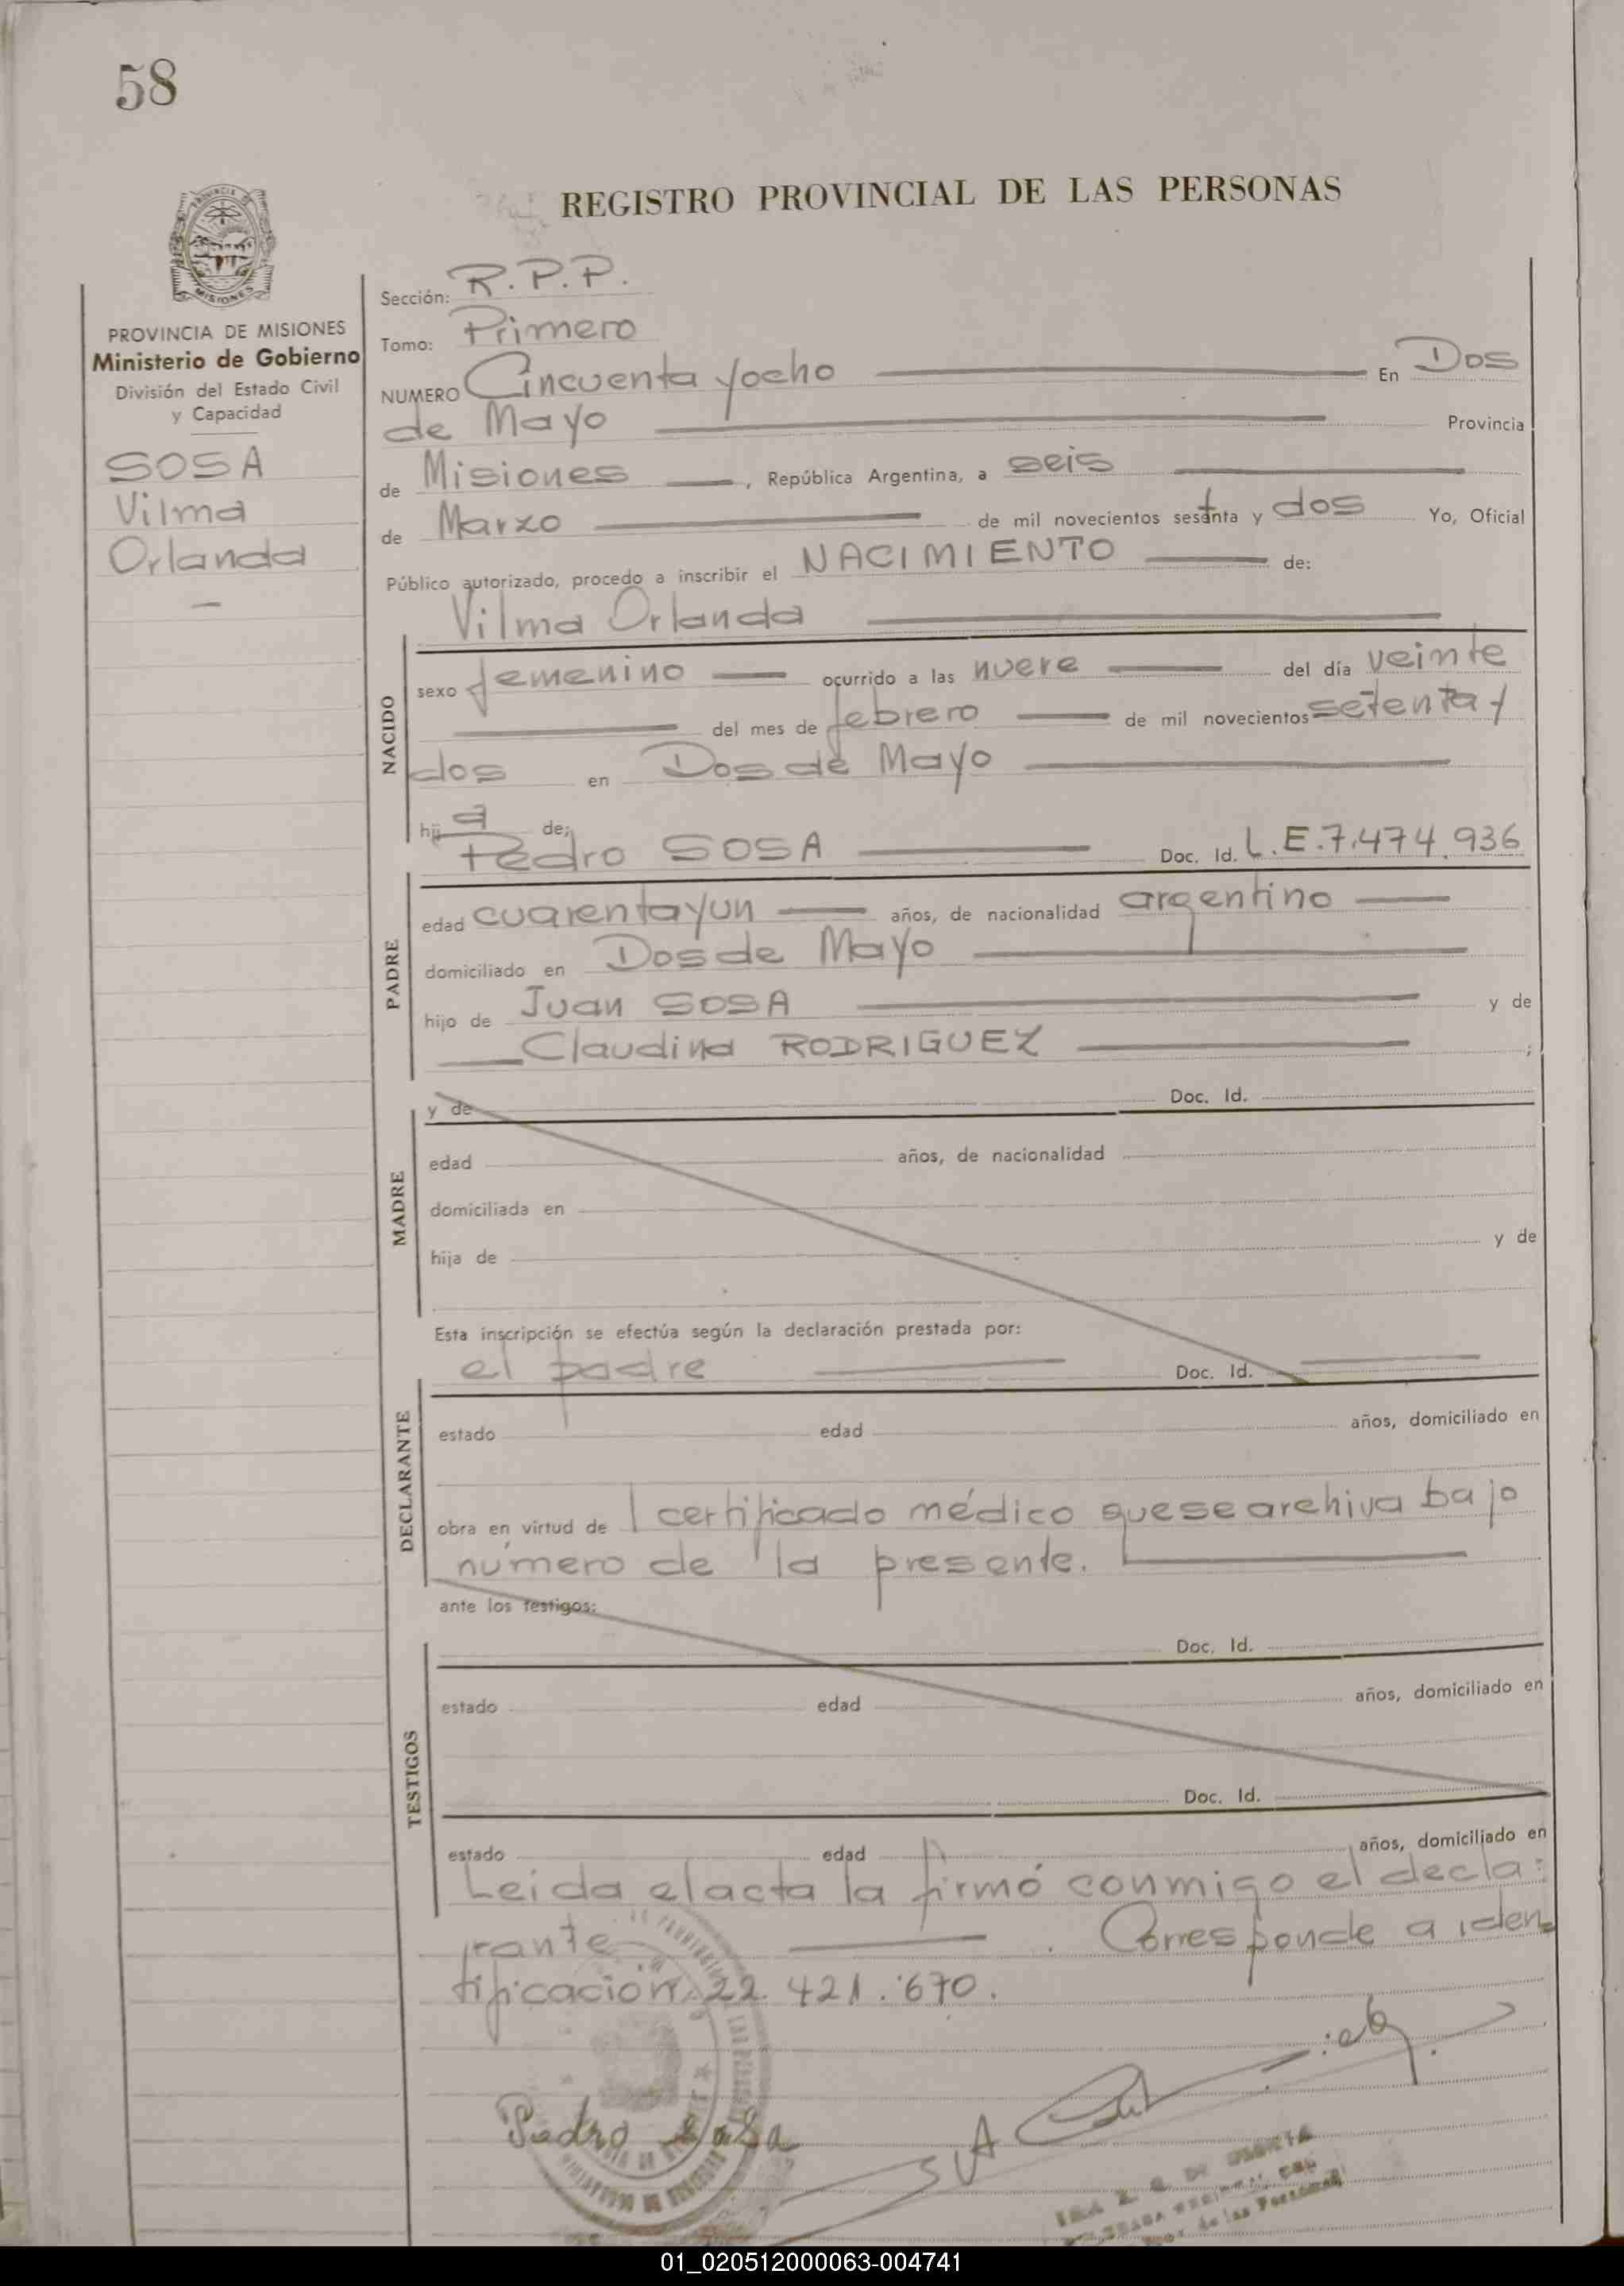 58
REGISTRO PROVINCIAL DE LAS PERSONAS
PROVINCIA DE MISIONES
Ministerio de Gobierno
División del Estado Civil
y Capacidad
SOSA
Vilma
Orlanda
Sección: R.P.P.
Tomo: Primero
NUMERO Cincuenta y ocho En Dos
de Mayo Provincia
de Misiones, República Argentina, a seis
de Marzo de mil novecientos setenta y dos Yo, Oficial
Público autorizado, procedo a inscribir el NACIMIENTO de:
Vilma Orlanda
NACIDO
sexo femenino ocurrido a las nueve del día veinte
del mes de febrero de mil novecientos setenta y
dos en Dos de Mayo
hija de:
Pedro SOSA Doc. Id. L.E.7.474.936
PADRE
edad cuarenta y un años, de nacionalidad argentino
domiciliado en Dos de Mayo
hijo de Juan SOSA y de
Claudina RODRIGUEZ ;
MADRE
y de Doc. Id.
edad años, de nacionalidad
domiciliada en
hija de y de
Esta inscripción se efectúa según la declaración prestada por:
el padre Doc. Id.
DECLARANTE
estado edad años, domiciliado en
obra en virtud de l certificado médico que se archiva bajo
número de la presente.
ante los testigos:
TESTIGOS
Doc. Id.
estado edad años, domiciliado en
Doc. Id.
estado edad años, domiciliado en
Leida el acta la firmó conmigo el decla:
rante . Corresponde a iden
tificación 22.421.670.
Pedro Sosa
01_020512000063-004741